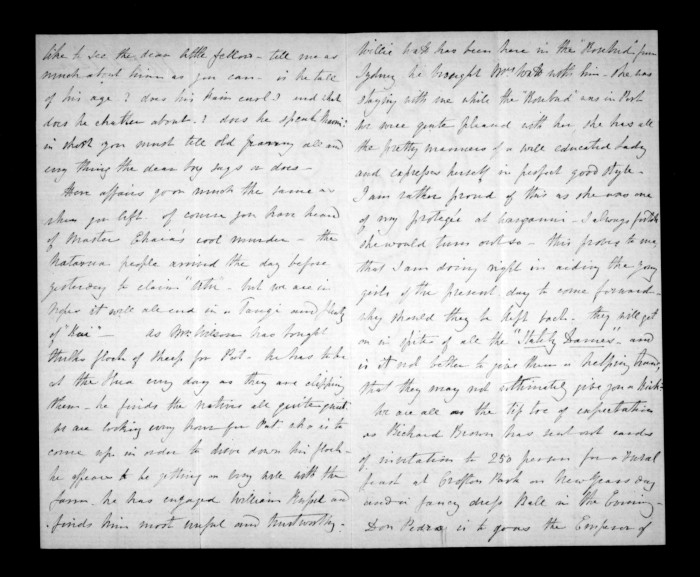 like to see the dear little fellow - tell me as
much about him as you can - is he tall
of his age? does his hair curl? and what
does he chatter about? does he speak Maori?
in short you must tell old granny all and
every thing the dear boy says or does -
Here affairs go on much the same as
when you left. of course you have heard
of Master cool murder - the
people arrived the day before
yesterday to claim "Utu" - but we are in
hopes it will all end in a Tangi and plenty
of "Kai" - as Mr Nelson has bought
flock of sheep for Pat - he has to be
at the every day as they are clipping
them - he finds the natives all quite quiet.
we are looking every hour for Pat who is to
come up in order to drive down his flock -
he appears to be getting on very well with the
farm - he has engaged William and
finds him most useful and trustworthy -
Willie Watt has been here in the "Rosebud" from
Sydney he brought Mrs Watt with him - she was
staying with me while the "Rosebud" was in Port
we were quite pleased with her, she has all
the pretty manners of a well educated Lady
and expresses herself in perfect good style -
I am rather proud of this as she was one
of my protegée at - I always
she would turn out so - this proves to me
that I am doing right in aiding the young
girls of the present day to come forward -
why should they be kept back - they will get
on in spite of all the "Stately Dames" - and
is it not better to give them a helping hand,
that they may not ultimately give you a kick -
We are all on the tip toe of expectation
as Richard Brown has sent out cards
of invitation to 250 persons for a rural
feast at Park on New Years day
and a fancy dress Ball in the Evening -
Don Pedro is to go as the Emperor of